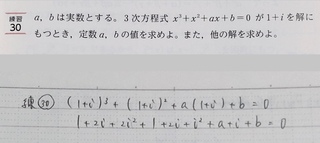 練習
30
a, bは実数とする。3次方程式 x³+x²+ax+b=0 が1+iを解に
もつとき，定数a, bの値を求めよ。また，他の解を求めよ。
練 ㉚ (1+i)³+(1+i)²+a(1+i)+b=0
1+2i+2i²+1+2i+i²+a+i+b=0